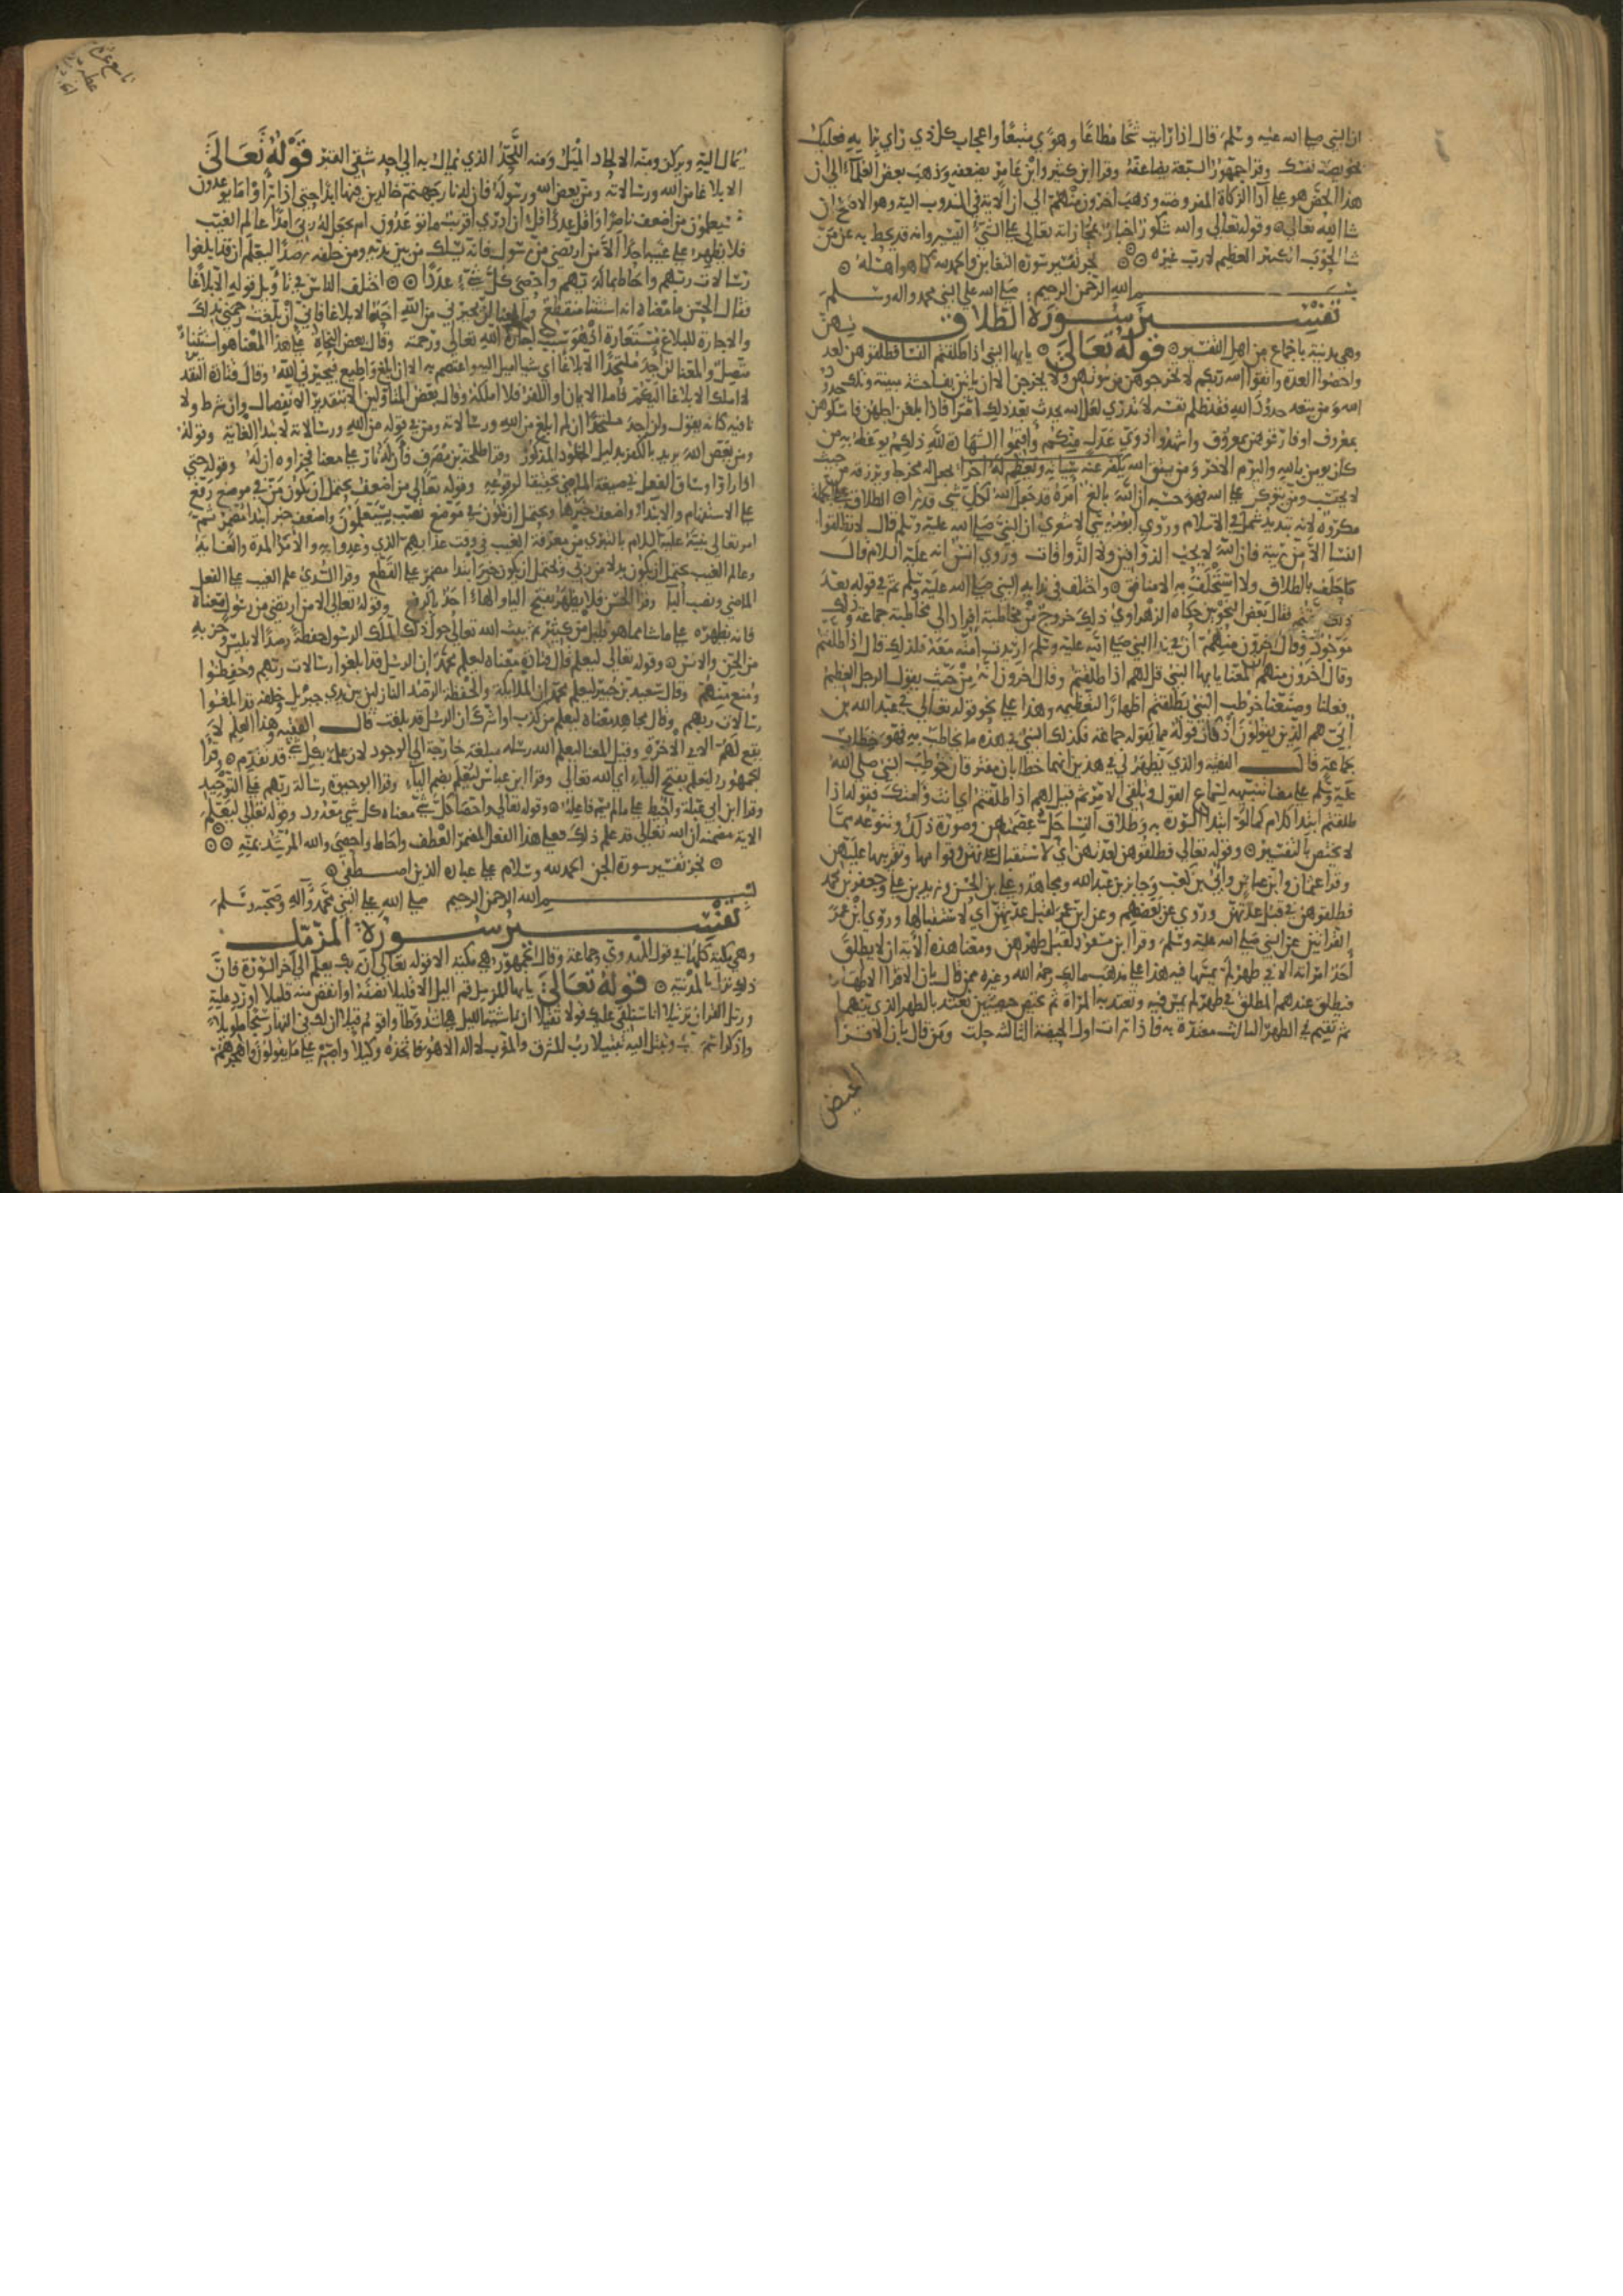 ان النبي صلى الله عليه وسلم قال اذا رايت شحا مطاعا وهوى متبعا واعجاب كل ذي راي برايه فعليك
بخويصة نفسك وقرا جمهور السبعة يضاعفه وقرا ابن كثير وابن عامر يضعفه وذهب بعض العلماء الى ان
هذا الحض هو على ادا الزكاة المفروضة وذهب اخرون منهم الى ان الاية في المندوب اليه وهو الاصح ان
شا الله تعالى وقوله تعالى والله شكور اخبار بمجازاته تعالى على الشيء اليسير وانه قد يحط به عن من
شا الحوب الكبير العظيم لا رب غيره نجز تفسير سورة التغابن والحمد لله كما هو اهله
بسم الله الرحمن الرحيم صلى الله على النبي محمد واله وسلم
تفسير سورة الطلاق
وهي مدنية باجماع من اهل التفسير قوله تعالى يايها النبي اذا طلقتم النسا فطلقوهن لعدتهن
واحصوا العدة واتقوا الله ربكم لا تخرجوهن من بيوتهن ولا يخرجن الا ان ياتين بفاحشة مبينة وتلك حدود
الله ومن يتعد حدود الله فقد ظلم نفسه لا تدري لعل الله يحدث بعد ذلك امرا فاذا بلغن اجلهن فامسكوهن
بمعروف او فارقوهن بمعروف واشهدوا ذوي عدل منكم واقيموا الشهادة لله ذلكم يوعظ به من
كان يومن بالله واليوم الاخر ومن يتق الله يكفر عنه سيئاته ويعظم له اجرا يجعل له مخرجا ويرزقه من حيث
لا يحتسب ومن يتوكل على الله فهو حسبه ان الله بالغ امره قد جعل الله لكل شي قدرا الطلاق على الجملة
مكروه لانه تبديد شمل في الاسلام وروى ابو موسى الاشعري ان النبي صلى الله عليه وسلم قال لا تطلقوا
النسا الا من ريبة فان الله لا يحب الذواقين ولا الذواقات وروى انس انه عليه السلام قال
ما حلف بالطلاق ولا استحلف به الا منافق واختلف في ندايه النبي صلى الله عليه وسلم ثم في قوله بعد
ذلك طلقتم فقال بعض النحويين حكاه الزهراوي ذلك خروج من مخاطبة افراد الى مخاطبة جماعة وذلك
موجود وقال اخرون منهم ان في ندا النبي صلى الله عليه وسلم اريدت امته معه فلذلك قال اذا طلقتم
وقال اخرون منهم المعنا يايها النبي قل لهم اذا طلقتم وقال اخرون انه من حيث يقول الرجل العظيم
فعلنا وصنعنا خوطب النبي بطلقتم اظهارا لتعظيمه وهذا على نحو قوله تعالى في عبد الله بن
ابي هم الذين يقولون اذ كان قوله مما يقوله جماعة فكذلك النبي في هذه ما يخاطب به فهو خطاب
لجماعة قال الفقيه والذي يظهر لي في هذين انهما خطابان مفترقان خوطب النبي صلى الله
عليه وسلم على معنا تنبيهه لسماع القول وتلقي الامر ثم قيل لهم اذا طلقتم اي انت وامتك فقوله اذا
طلقتم ابتدا كلام كما لو ابتدا السورة به وطلاق النسا حل عصمتهن وصورة ذلك وتنوعه مما
لا يختص بالتفسير وقوله تعالى فطلقوهن لعدتهن اي لاستقبال عدتهن وقوامها وتقريبها عليهن
وقرا عثمان وابن عباس وابي بن كعب وجابر بن عبد الله ومجاهد وعلي بن الحسن وزيد بن علي وجعفر بن محمد
فطلقوهن في قبل عدتهن وروي عن بعضهم وعن ابن عمر لقبل عدتهن اي لاستقبالها وروى ابن عمر
القراتين عن النبي صلى الله عليه وسلم وقرا ابن مسعود لقبل طهرهن ومعنا هذه الاية ان لا يطلق
احد امراته الا في طهر لم يمسها فيه هذا على مذهب مالك رحمه الله وغيره ممن قال بان الاقرا الاطهار
فيطلق عندهم المطلق في طهر لم يمس فيه وتعتد به المراة ثم تحيض حيضتين تعتد بالطهر الذي بينهما
ثم تقيم في الطهر الثالث معتدة به فاذا رات اول الحيضة الثالثة حلت ومن قال بان الاقرا
الحيض
يمال اليه ويركن ومنه الالحاد الميل ومنه اللحد الذي يمال به الى احد شقي القبر قوله تعالى
الا بلاغا من الله ورسالاته ومن يعص الله ورسوله فان له نار جهنم خالدين فيها ابدا حتى اذا راوا ما يوعدون
فسيعلمون من اضعف ناصرا واقل عددا قل ان ادري اقريب ما توعدون ام يجعل له ربي امدا عالم الغيب
فلا يظهر على غيبه احدا الا من ارتضى من رسول فانه يسلك من بين يديه ومن خلفه رصدا ليعلم ان قد ابلغوا
رسالات ربهم واحاط بما لديهم واحصى كل شيء عددا اختلف الناس في تاويل قوله الا بلاغا
فقال الحسن ما معناه انه استثنا منقطع والمعنا لن يجيرني من الله احد الا بلاغا فاني ان بلغت رحمني بذلك
والاجارة للبلاغ مستعارة اذ هو سبب اجارة الله تعالى ورحمته وقال بعض النحاة على هذا المعنا هو استثناء
متصل والمعنا لن اجد ملتحدا الا بلاغا اي شيا اميل اليه واعتصم به الا ان ابلغ واطيع فيجيرني الله وقال قتادة التقدير
لا املك الا بلاغا اليكم فاما الايمان او الكفر فلا املكه وقال بعض المتاولين الا بتقدير الانفصال وان شرط ولا
نافية كانه يقول ولن اجد ملتحدا ان لم ابلغ من الله ورسالاته ومن في قوله من الله ورسالاته لابتدا الغاية وقوله
ومن يعص الله يريد بالكفر بدليل الخلود المذكور وقرا طلحة بن مصرف فان له نار على معنا فجزاوه ان له وقوله حتى
اذا راوا وساق الفعل في صيغة الماضي تحقيقا لوقوعه وقوله تعالى من اضعف يحتمل ان يكون من في موضع رفع
على الاستفهام والابتداء واضعف خبرها ويحتمل ان تكون في موضع نصب بسيعلمون واضعف خبر ابتدا مضمر ثم
امر تعالى نبيه عليه السلام بالتبري من معرفة الغيب في وقت عذابهم الذي وعدوا به والامد المدة والغاية
وعالم الغيب يحتمل ان يكون بدلا من ربي ويحتمل ان يكون خبر ابتدا مضمر على القطع وقرا السدي علم الغيب على الفعل
الماضي ونصب البا وقرا الحسن فلا يظهر بفتح اليا والهاء احد بالرفع وقوله تعالى الا من ارتضى من رسول معناه
فانه يظهره على ما شا مما هو قليل من كثير ثم يبث الله تعالى حول ذلك الملك الرسول حفظة رصدا لابليس وحزبه
من الجن والانس وقوله تعالى ليعلم قال قتادة معناه ليعلم محمد ان الرسل قد ابلغوا رسالات ربهم وحفظوا
ومنع منهم وقال سعيد بن جبير ليعلم محمد ان الملايكة والحفظة الرصد النازلين بين يدي جبريل وخلفه قد ابلغوا
رسالات ربهم وقال مجاهد معناه ليعلم من كذب او اشرك ان الرسل قد بلغت قال الفقيه وهذا العلم لا
يقع لهم الا في الاخرة وقيل المعنا ليعلم الله رسله مبلغة خارجة الى الوجود لان علمه بكل شي قد تقدم وقرا
الجمهور ليعلم بفتح الياء اي الله تعالى وقرا ابن عباس ليعلم بضم الياء وقرا ابو حيوة رسالة ربهم على التوحيد
وقرا ابن ابي عبلة واحيط على ما لم يسم فاعله وقوله تعالى واحصى كل شي معناه كل شي معدود وقوله تعالى ليعلم
الاية مضمنه ان الله تعالى قد علم ذلك فعلى هذا الفعل المضمر العطف واحاط واحصى والله المرشد بمنه
نجز تفسير سورة الجن الحمد لله وسلام على عباده الذين اصطفى
بسم الله الرحمن الرحيم صلى الله على النبي محمد وآله وصحبه وسلم
تفسير سورة المزمل
وهي مكية كلها في قول المهدوي وجماعة وقال الجمهور هي مكية الا قوله تعالى ان ربك يعلم الى اخر السورة فان
ذلك نزل بالمدينة قوله تعالى يايها المزمل قم الليل الا قليلا نصفه او انقص منه قليلا او زد عليه
ورتل القران ترتيلا انا سنلقي عليك قولا ثقيلا ان ناشئة الليل هي اشد وطا واقوم قيلا ان لك في النهار سبحا طويلا
واذكر اسم ربك وتبتل اليه تبتيلا رب المشرق والمغرب لا اله الا هو فاتخذه وكيلا واصبر على ما يقولون واهجرهم